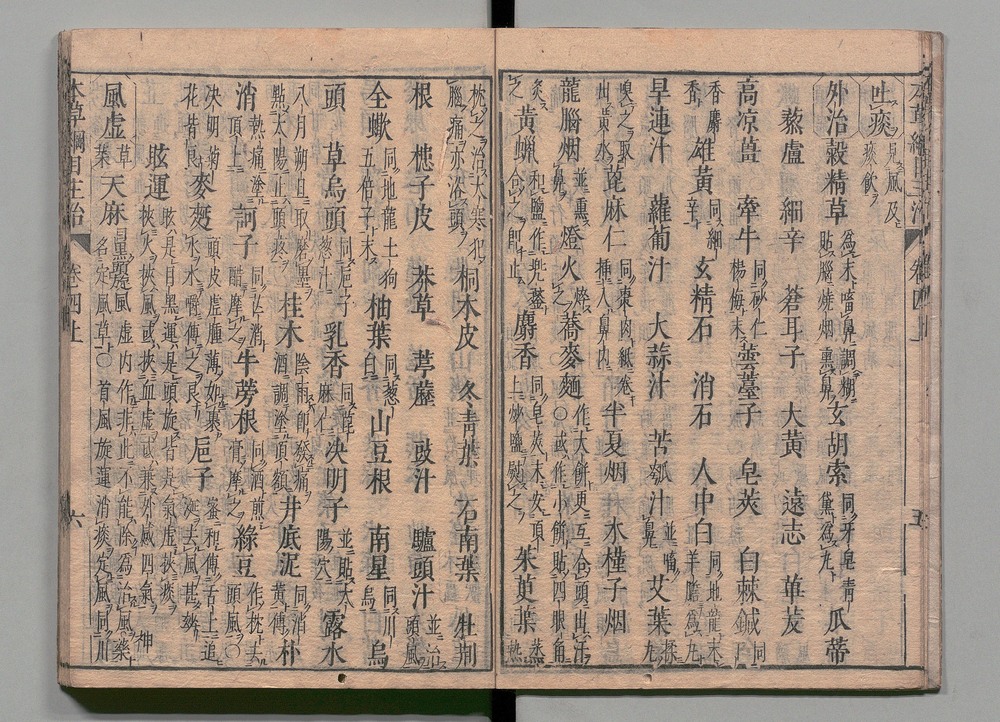 吐痰 見風及痰飲
外治 穀精草 為末㗜鼻調糊貼腦燒烟熏鼻 玄胡索 同牙皂青黛為丸 瓜蒂
藜蘆 細辛 蒼耳子 大黃 遠志 蓽茇
高凉薑 牽牛 同砂仁楊梅末 蕓薹子 皂莢 白棘鍼 同丁
香麝香 雄黃 同細辛 玄精石 消石 人中白 同地龍末羊膽為丸
旱連汁 蘿蔔汁 大蒜汁 苦瓠汁 並㗜鼻 艾葉 揉丸
嗅之取出黃水 蓖麻仁 同棗肉紙卷插入鼻内 半夏烟 木槿子烟
龍腦烟 並熏鼻 燈火 焠之 蕎麥麵 作大餅更互合頭出汗○或作小餅貼四眼角
灸之 黃蠟 和鹽作兜鍪合之即止 麝香 同皂莢末安頂上炒鹽熨之 茱萸葉 蒸熱
枕之治大寒犯腦痛亦浴頭 桐木皮 冬青葉 石南葉 牡荊
根 槵子皮 莽草 葶藶 豉汁 驢頭汁 並治頭風
全蠍 同地龍土狗五倍子末 柚葉 同葱白 山豆根 南星 同川烏 烏
頭 草烏頭 同巵子葱汁 乳香 同蓖麻仁 决明子 並貼太陽穴 露水
八月朔旦取磨墨點太陽止頭疼 桂木 陰雨即發痛酒調塗頂額 井底泥 同消黃傅 朴
消 熱痛塗頂上 訶子 同芒消醋摩之 牛蒡根 同酒煎膏摩之 綠豆 作枕去頭風○
决明菊花皆良 麥麪 頭皮虚腫薄如裹水水嚼傅之良 巵子 蜜和傅舌上追涎去風甚效
眩運 眩是目黑運是頭旋皆是氣虚挾痰挾火挾風或挾血虚或兼外感四氣
風虚 草菜 天麻 目黑頭旋風虚内作非此不能除為治風神藥名定風草○首風旋運消痰定風同川
本草綱目主治 卷四上 五
本草綱目主治 卷四上 六